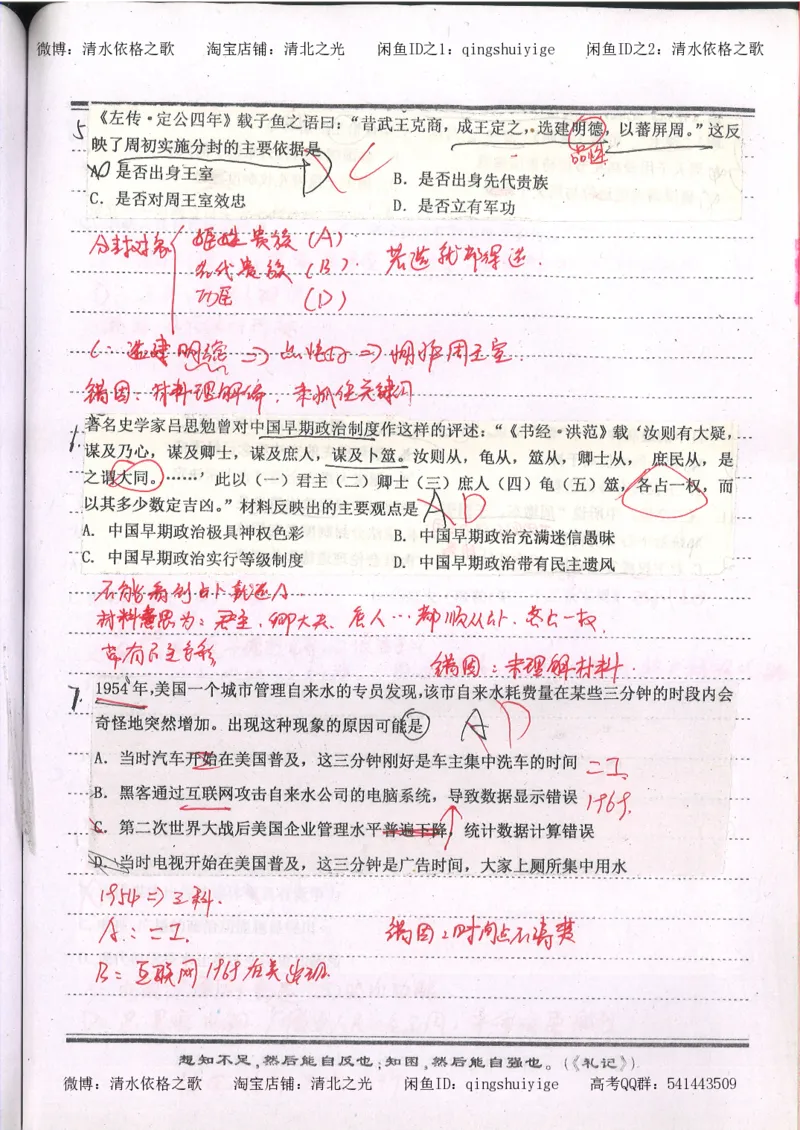 微博：清水依格之歌 淘宝店铺：清北之光 闲鱼ID之1：qingshuiyige 闲鱼ID之2：清水依格之歌
5
《左传·定公四年》载子鱼之语曰：“昔武王克商，成王定之，选建明德，以蕃屏周。”这反
映了周初实施分封的主要依据是 D C
品性
A. 是否出身王室 B. 是否出身先代贵族
C. 是否对周王室效忠 D. 是否立有军功
分封对象 姬姓贵族（A）
先代贵族（B）. 若选我都得选.
功臣 （D）
C：选建明德 => 品性好 => 拥护周王室.
错因：材料理解偏，未抓住关键词
著名史学家吕思勉曾对中国早期政治制度作这样的评述：“《书经·洪范》载‘汝则有大疑，
谋及乃心，谋及卿士，谋及庶人，谋及卜筮。汝则从，龟从，筮从，卿士从， 庶民从，是
之谓大同。……’此以（一）君主（二）卿士（三）庶人（四）龟（五）筮，各占一权，而
以其多少数定吉凶。”材料反映出的主要观点是 A D
A. 中国早期政治极具神权色彩 B. 中国早期政治充满迷信愚昧
C. 中国早期政治实行等级制度 D. 中国早期政治带有民主遗风
不能看到占卜就选A.
材料意思为：君主、卿大夫、庶人…都顺从卦、各占一权.
带有民主色彩
错因：未理解材料
7.
1954年，美国一个城市管理自来水的专员发现，该市自来水耗费量在某些三分钟的时段内会
奇怪地突然增加。出现这种现象的原因可能是 A D
A. 当时汽车开始在美国普及，这三分钟刚好是车主集中洗车的时间 二工
B. 黑客通过互联网攻击自来水公司的电脑系统，导致数据显示错误 1969.
C. 第二次世界大战后美国企业管理水平普遍下降，统计数据计算错误
D. 当时电视开始在美国普及，这三分钟是广告时间，大家上厕所集中用水
1954 => 三科.
A：二工. 错因：时间点不清楚
B：互联网1969在美出现.
想知不足，然后能自反也；知困，然后能自强也。（《礼记》）
微博：清水依格之歌 淘宝店铺：清北之光 闲鱼ID：qingshuiyige 高考QQ群：541443509